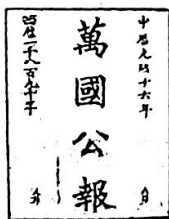 中曆光緒十六年
萬國公報
西曆一千八百九十年